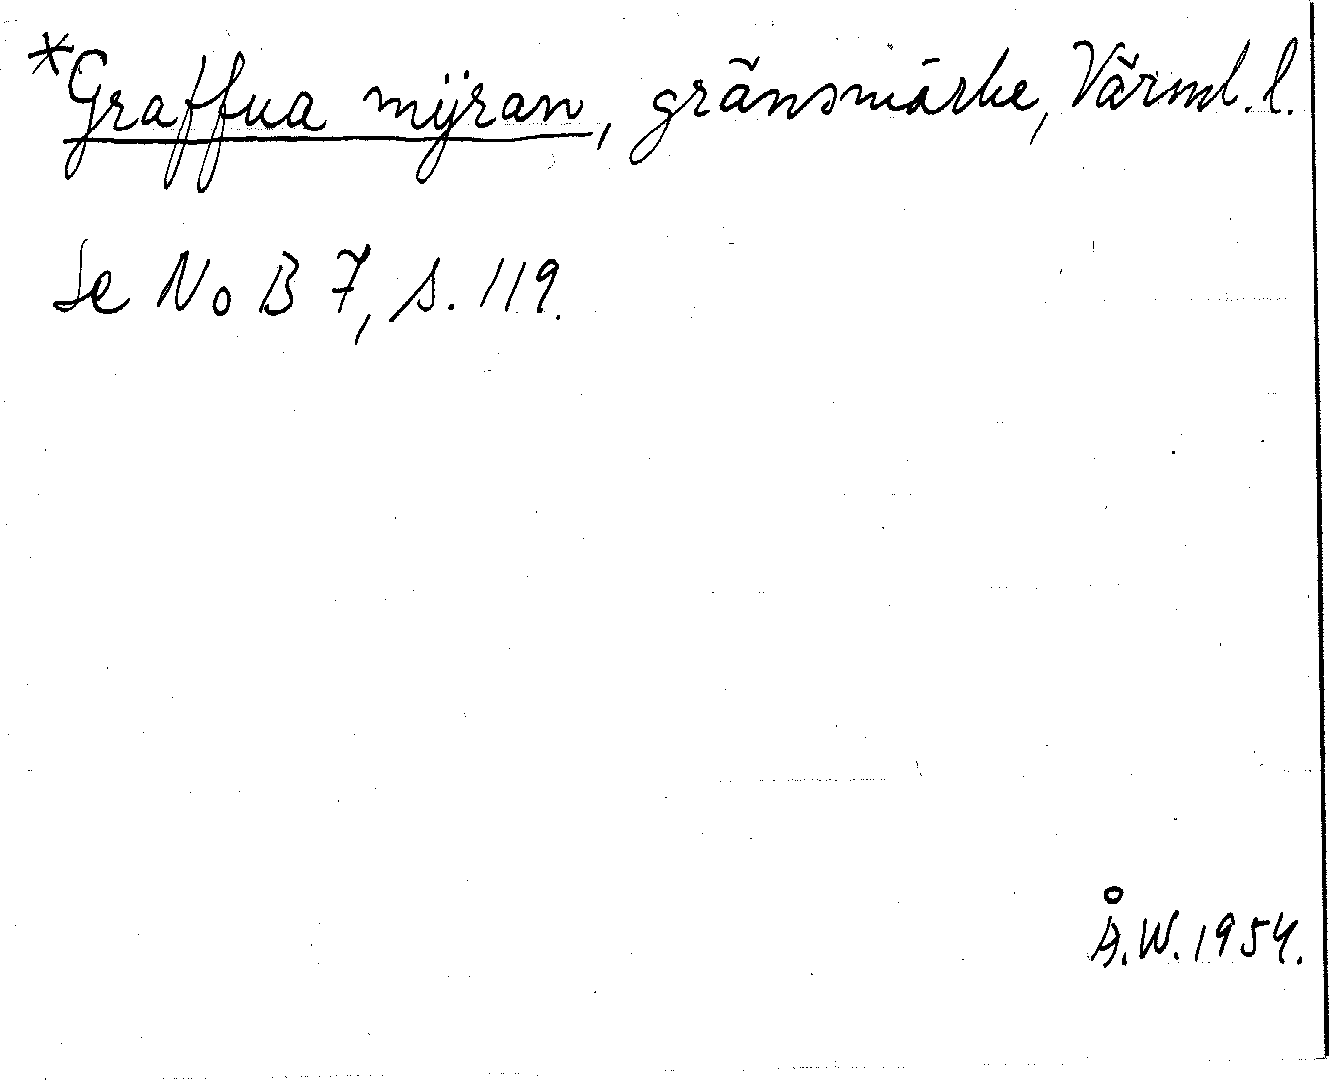 *Graffua mÿran, gränsmärke, Värml. l.
Se NoB 7, s. 119.
Å.W. 1954.